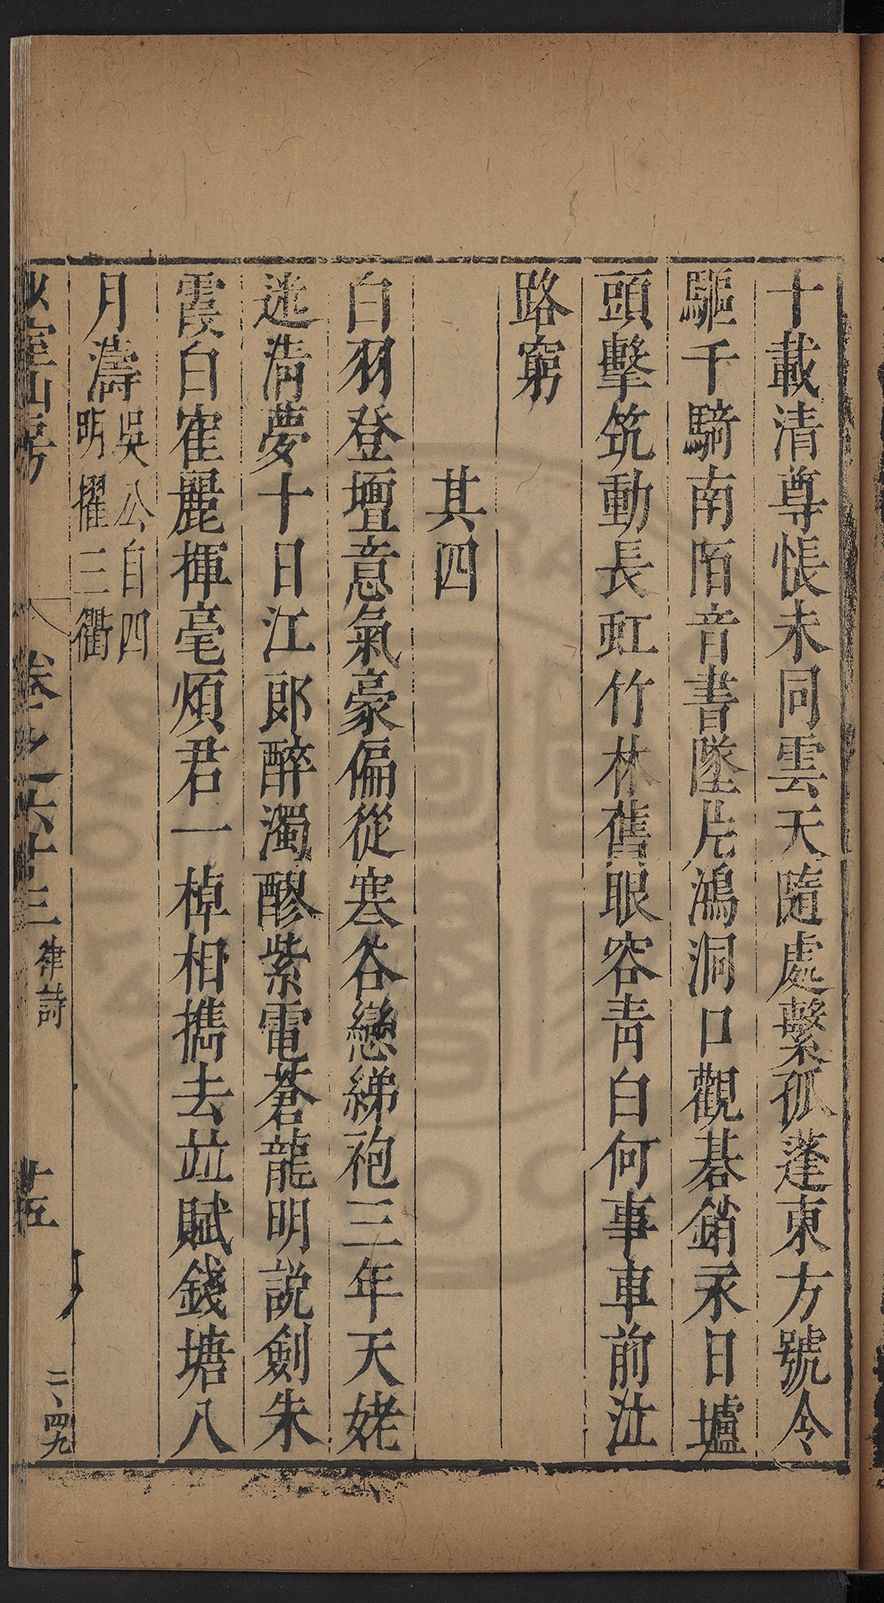 十載清尊悵未同雲天隨處繫孤蓬東方號令
驅千騎南陌音書墜片鴻洞口觀碁銷永日壚
頭擊筑動長虹竹林舊眼容青白何事車前泣
路窮
其四
白羽登壇意氣豪偏從塞谷戀綈袍三年天姥
迷清夢十日江郎醉濁醪紫電蒼龍明説劍朱
霞白寉麗揮毫煩君一棹相攜去竝賦錢塘八
月濤吳公自四
明擢三衢
室山房
卷之六十三
律詩
十五
二、四九